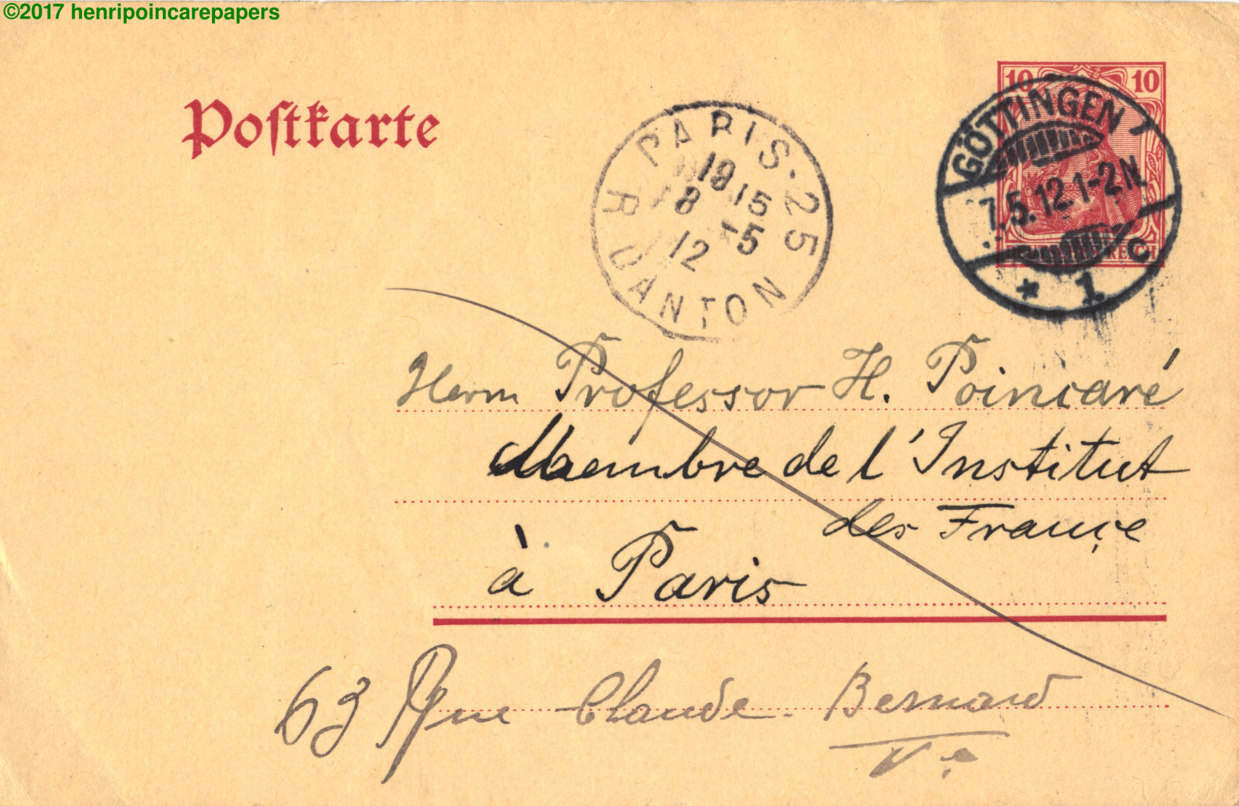 ©2017 henripoincarepapers
Postkarte
10 10
GÖTTINGEN
7.5.12.1-2N.
* 1. c
REICH
PARIS · 25
19 15
8 - 5
12
R DANTON
Herrn Professor H. Poincaré
Membre de l'Institut
des Françe
à Paris
63 Rue Claude-Bernard
Ve